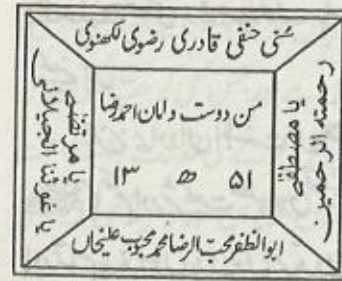 سُنی حنفی قادری رضوی لکھنوی
یا مصطفےٰ
رحمتہ الرحمین
من دوست دامان احمد رضا
۱۳ ھ ۵۱
یا مرتضےٰ
یا غوثنا الجیلانی
ابوالظفر محبّ الرضا محمد محبوب علیخاں